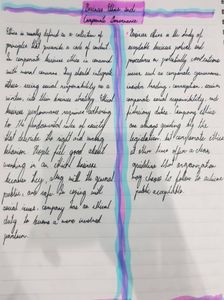 Business Ethics and
Corporate Governance
Ethics is usually defined as a collection of
principles that generate a code of conduct.
In corporate business ethics is concerned
with moral concerns they should integrate
when seeing social responsibility as a
service, its when business stability. Ethical
business performance requires adhering
to the fundamental rules of society
that dictate the right and wrong
behaviour. People feel good about
working in an ethical business
because they, along with the general
public, are safe. In coping with
social issues, company has an ethical
duty to become a more involved
partner.
Business ethics is the body of
acceptable business policies and
procedures on potentially contentious
issues, such as corporate governance,
insider trading, corruption, racism,
corporate social responsibility, and
fiduciary duties. Company ethics
are always guiding by the
legislation but corporate ethics
at other times offer a clear
guideline that organisation
may choose to follow to achieve
public acceptable